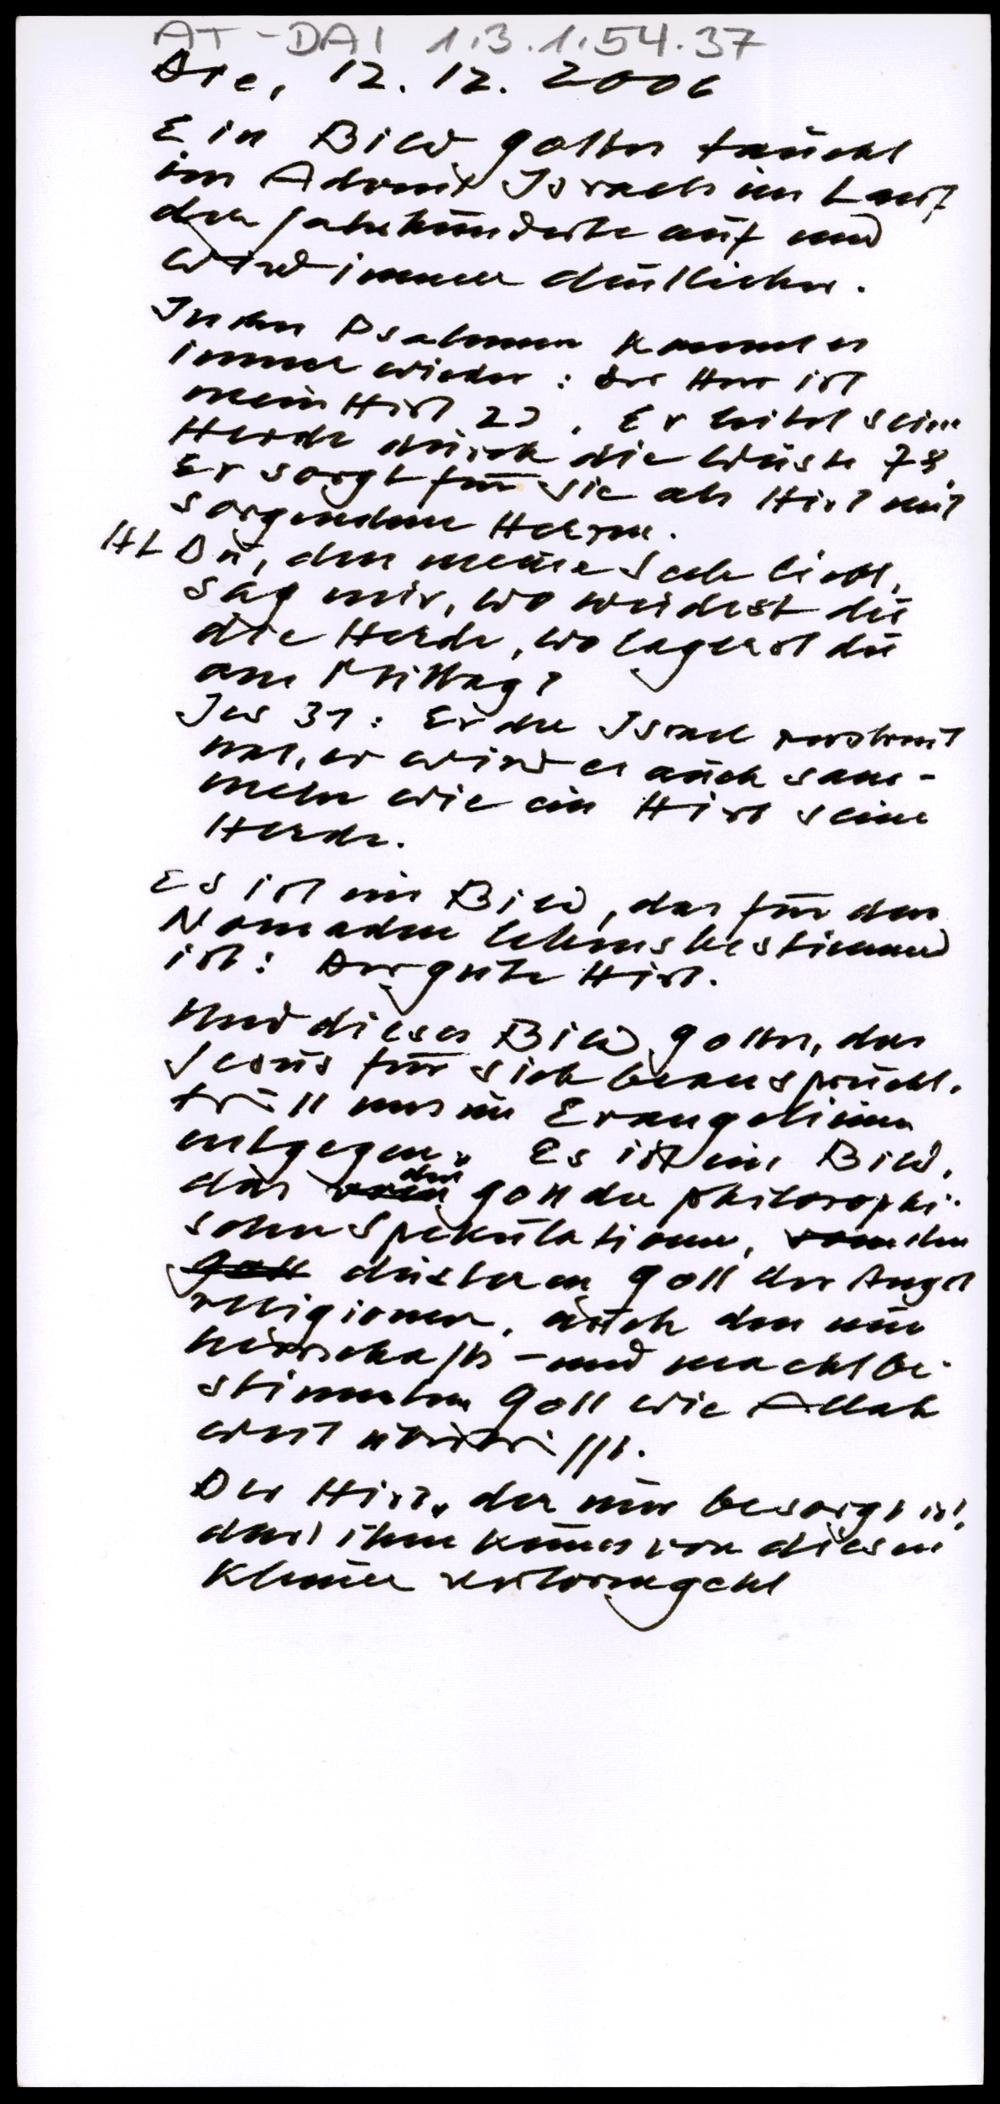 AT-DAI 1.3.1.54.37
Die, 12. 12. 2006
Ein Bild Gottes taucht
im Advent Israels im Lauf
der Jahrhunderte auf und
wird immer deutlicher.
In den Psalmen kommt es
immer wieder: Der Herr ist
mein Hirt 23. Er leitet seine
Herde durch die Wüste 78,
Er sorgt für sie als Hirt mit
sorgendem Herzen.
Hl Du, den meine Seele liebt,
sag mir, wo weidest du
die Herde, wo lagerst du
am Mittag?
Jes 31: Er der Israel zerstreut
hat, er wird es auch sam-
meln wie ein Hirt seine
Herde.
Es ist ein Bild, das für den
Nomaden lebensbestimmend
ist: Der gute Hirt.
Und dieses Bild Gottes, das
Jesus für sich beansprucht,
tritt uns im Evangelium
entgegen. Es ist ein Bild,
das den Gott der philosophi-
schen Spekulationen, vom den
Gott düsteren Gott der Angst
religionen, auch den nur
herrschafts- und machtbe-
stimmten Gott wie Allah
weit übertrifft.
Der Hirt, der nur besorgt ist,
dass ihm keines von diesen
Kleinen verlorengeht